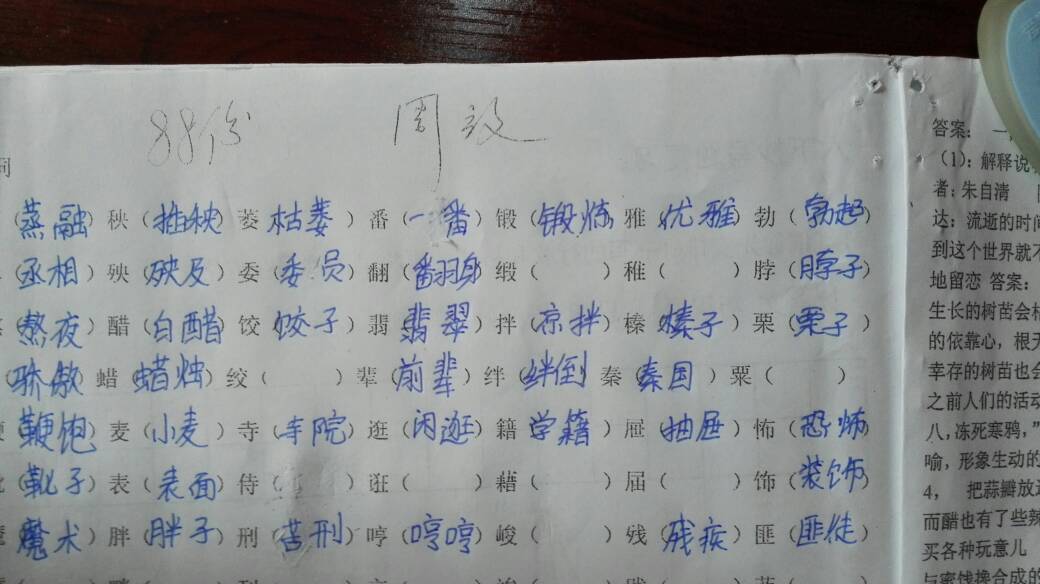 88份 周
词
（蒸融）秧（推秧）菱 枯萎）番（一番）锻（锻炼 雅 优雅）勃（勃起）
（丞相 殃（殃及）委（委员 翻（翻身 缎（ ）稚（ ）脖（脖子）
（熬夜）醋（白醋 饺 饺子）翡 翡翠）拌（凉拌 榛（榛子）栗（栗子）
（骄傲 蜡（蜡烛）绞（ ）辈（前辈）绊（绊倒 秦（秦国 ）粟（ ）
鞭炮）麦（小麦）寺（寺院）逛（闲逛）籍 学籍）屉（抽屉）怖（恐怖
（靴子）表（表面）侍（ ）诳（ ）藉（ ）届（ ）饰（装饰
魔术）胖（胖子）刑（苦刑）哼（哼哼）峻（ ）残（残疾）匪（匪徒）
答案： 一
（1）：解释说
者：朱自清
达：流逝的时间
到这个世界就不
地留恋 答案：
生长的树苗会
的依靠心，根
幸存的树苗也会
之前人们的活动
八，冻死寒鸦，”
喻，形象生动的
4， 把蒜瓣放
而醋也有了些辣
买各种玩意儿
与蜜饯搀合成的